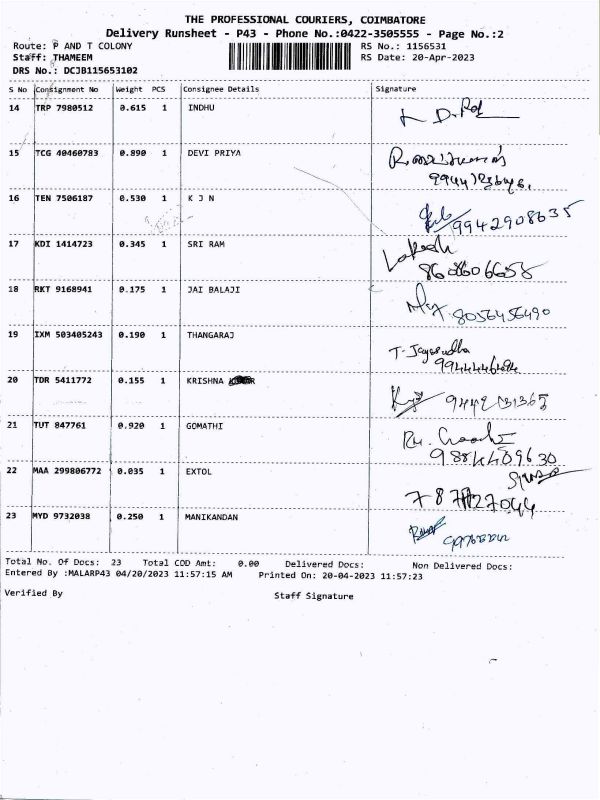 THE PROFESSIONAL COURIERS, COIMBATORE
Delivery Runsheet - P43 - Phone No.:0422-3505555 - Page No.:2
Route: P AND T COLONY RS No.: 1156531
Staff: THAMEEM RS Date: 20-Apr-2023
DRS No.: DCJB115653102
S No Consignment No Weight PCS Consignee Details Signature
14 TRP 7980512 0.615 1 INDHU
15 TCG 40460783 0.890 1 DEVI PRIYA
16 TEN 7506187 0.530 1 K J N
9942908635
17 KDI 1414723 0.345 1 SRI RAM
Lokesh
8608606658
18 RKT 9168941 0.175 1 JAI BALAJI
8056456490
19 IXM 503405243 0.190 1 THANGARAJ
T. Jayasudha
20 TDR 5411772 0.155 1 KRISHNA
21 TUT 847761 0.920 1 GOMATHI
9884409630
22 MAA 299806772 0.035 1 EXTOL
23 MYD 9732038 0.250 1 MANIKANDAN
Total No. Of Docs: 23 Total COD Amt: 0.00 Delivered Docs: Non Delivered Docs:
Entered By :MALARP43 04/20/2023 11:57:15 AM Printed On: 20-04-2023 11:57:23
Verified By Staff Signature